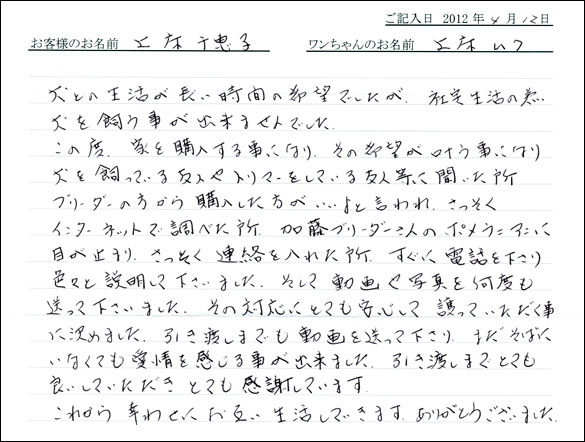 ご記入日 2012年4月12日
お客様のお名前 上床千恵子 ワンちゃんのお名前 上床
犬との生活が長い時間の希望でしたが、社宅生活の為
犬を飼う事が出来ませんでした。
この度、家を購入する事になり、その希望が叶う事になり
犬を飼っている友人やトリマーをしている友人等に聞いた所
ブリーダーの方から購入した方がいいよと言われ、さっそく
インターネットで調べた所、加藤ブリーダーさんのポメラニアンに
目が止まり、さっそく連絡を入れた所、すぐに電話を下さり
色々と説明して下さいました。そして動画や写真を何度も
送って下さいました。その対応にとても安心して譲っていただく事
に決めました。引き渡しまでも動画を送って下さり、まだそばに
いなくても愛情を感じる事が出来ました。引き渡しまでとても
良いしていただきとても感謝しています。
これから幸わせにお互い生活していきます。ありがとうございました。